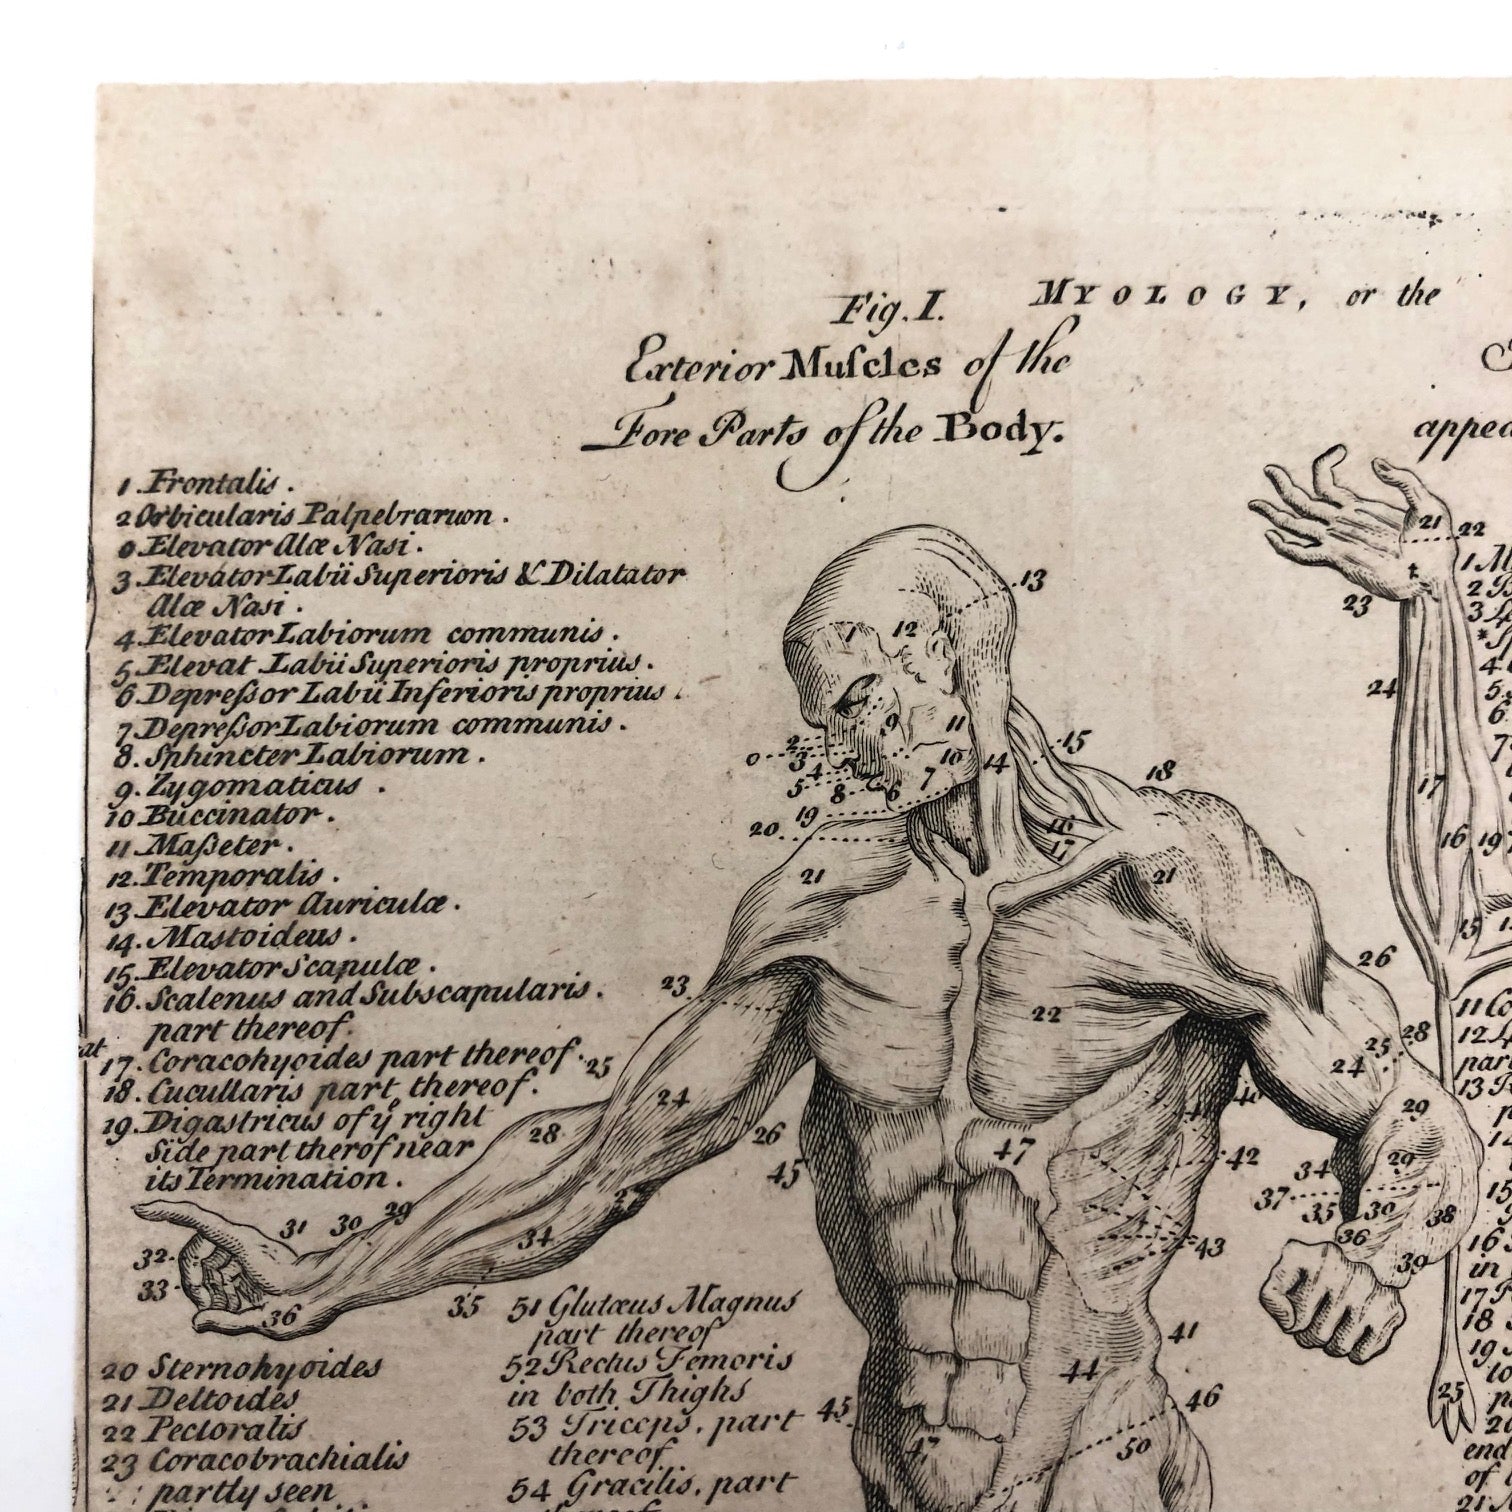 Fig. I.
MYOLOGY, or the
Exterior Muſcles of the
Fore Parts of the Body.
1. Frontalis.
2 Orbicularis Palpebrarum.
0. Elevator Alæ Nasi.
3. Elevator Labii Superioris & Dilatator
Alæ Nasi.
4. Elevator Labiorum communis.
5. Elevat Labii Superioris proprius.
6. Depreſsor Labii Inferioris proprius.
7. Depreſsor Labiorum communis.
8. Sphincter Labiorum.
9. Zygomaticus.
10 Buccinator.
11. Maſseter.
12. Temporalis.
13. Elevator Auriculæ.
14. Mastoideus.
15. Elevator Scapulæ.
16. Scalenus and Subscapularis.
part thereof.
17. Coracohyoides part thereof.
18. Cucullaris part thereof.
19. Digastricus of yͤ right
Side part therof near
its Termination.
20 Sternohyoides
21 Deltoides
22 Pectoralis
23 Coracobrachialis
partly seen
51 Glutæus Magnus
part thereof
52 Rectus Femoris
in both Thighs
53 Triceps, part
thereof.
54 Gracilis, part
1
12
13
9
11
10
2
0
3
4
5
8
6
7
14
15
18
19
20
16
17
21
21
23
22
26
25
24
28
25
24
28
26
29
27
31
30
29
34
32
33
35
36
45
47
42
43
41
44
46
45
47
50
40
29
34
37
35
30
38
36
39
21
22
23
24
17
16
19
15
25
11 Co
part
13
14
15
16
in
17
18
19
to
end
of
21